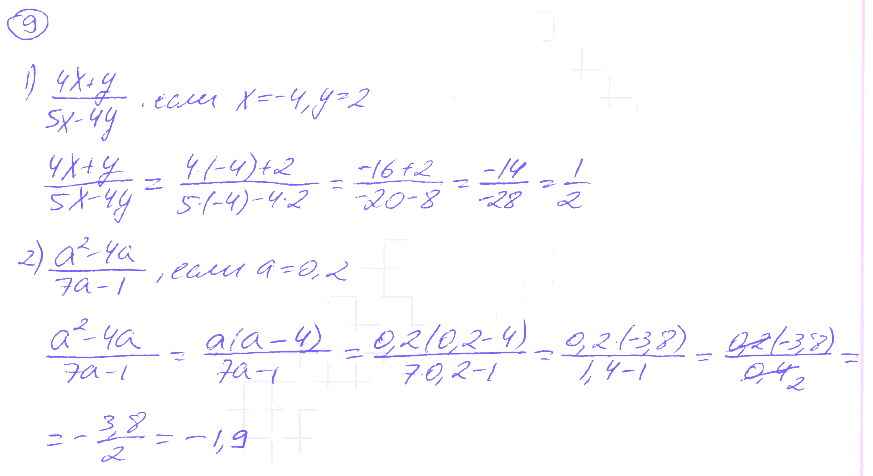 9
1) (4x+y)/(5x-4y), если x=-4, y=2
(4x+y)/(5x-4y) = (4(-4)+2)/(5·(-4)-4·2) = (-16+2)/(-20-8) = (-14)/(-28) = 1/2
2) (a²-4a)/(7a-1), если a=0,2
(a²-4a)/(7a-1) = (a(a-4))/(7a-1) = (0,2(0,2-4))/(7·0,2-1) = (0,2·(-3,8))/(1,4-1) = (0,2(-3,8))/(0,4 2) =
= -3,8/2 = -1,9